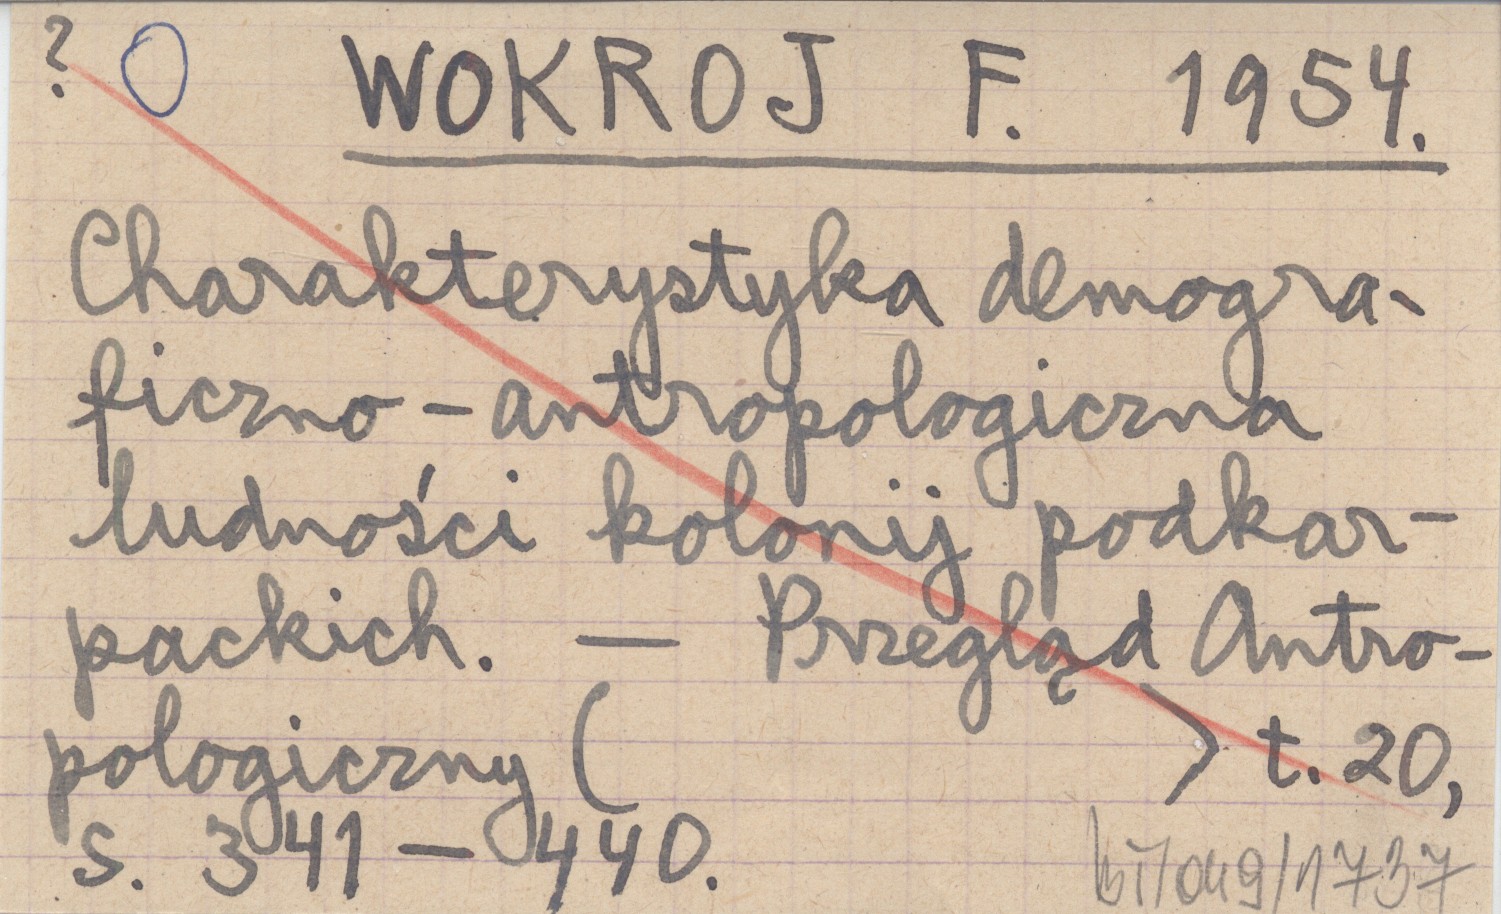 ? O WOKROJ F. 1954.
Charakterystyka demogra-
ficzno - antropologiczna
ludności kolonij podkar-
packich. — Przegląd Antro-
pologiczny ( ) t. 20,
s. 341 — 440.